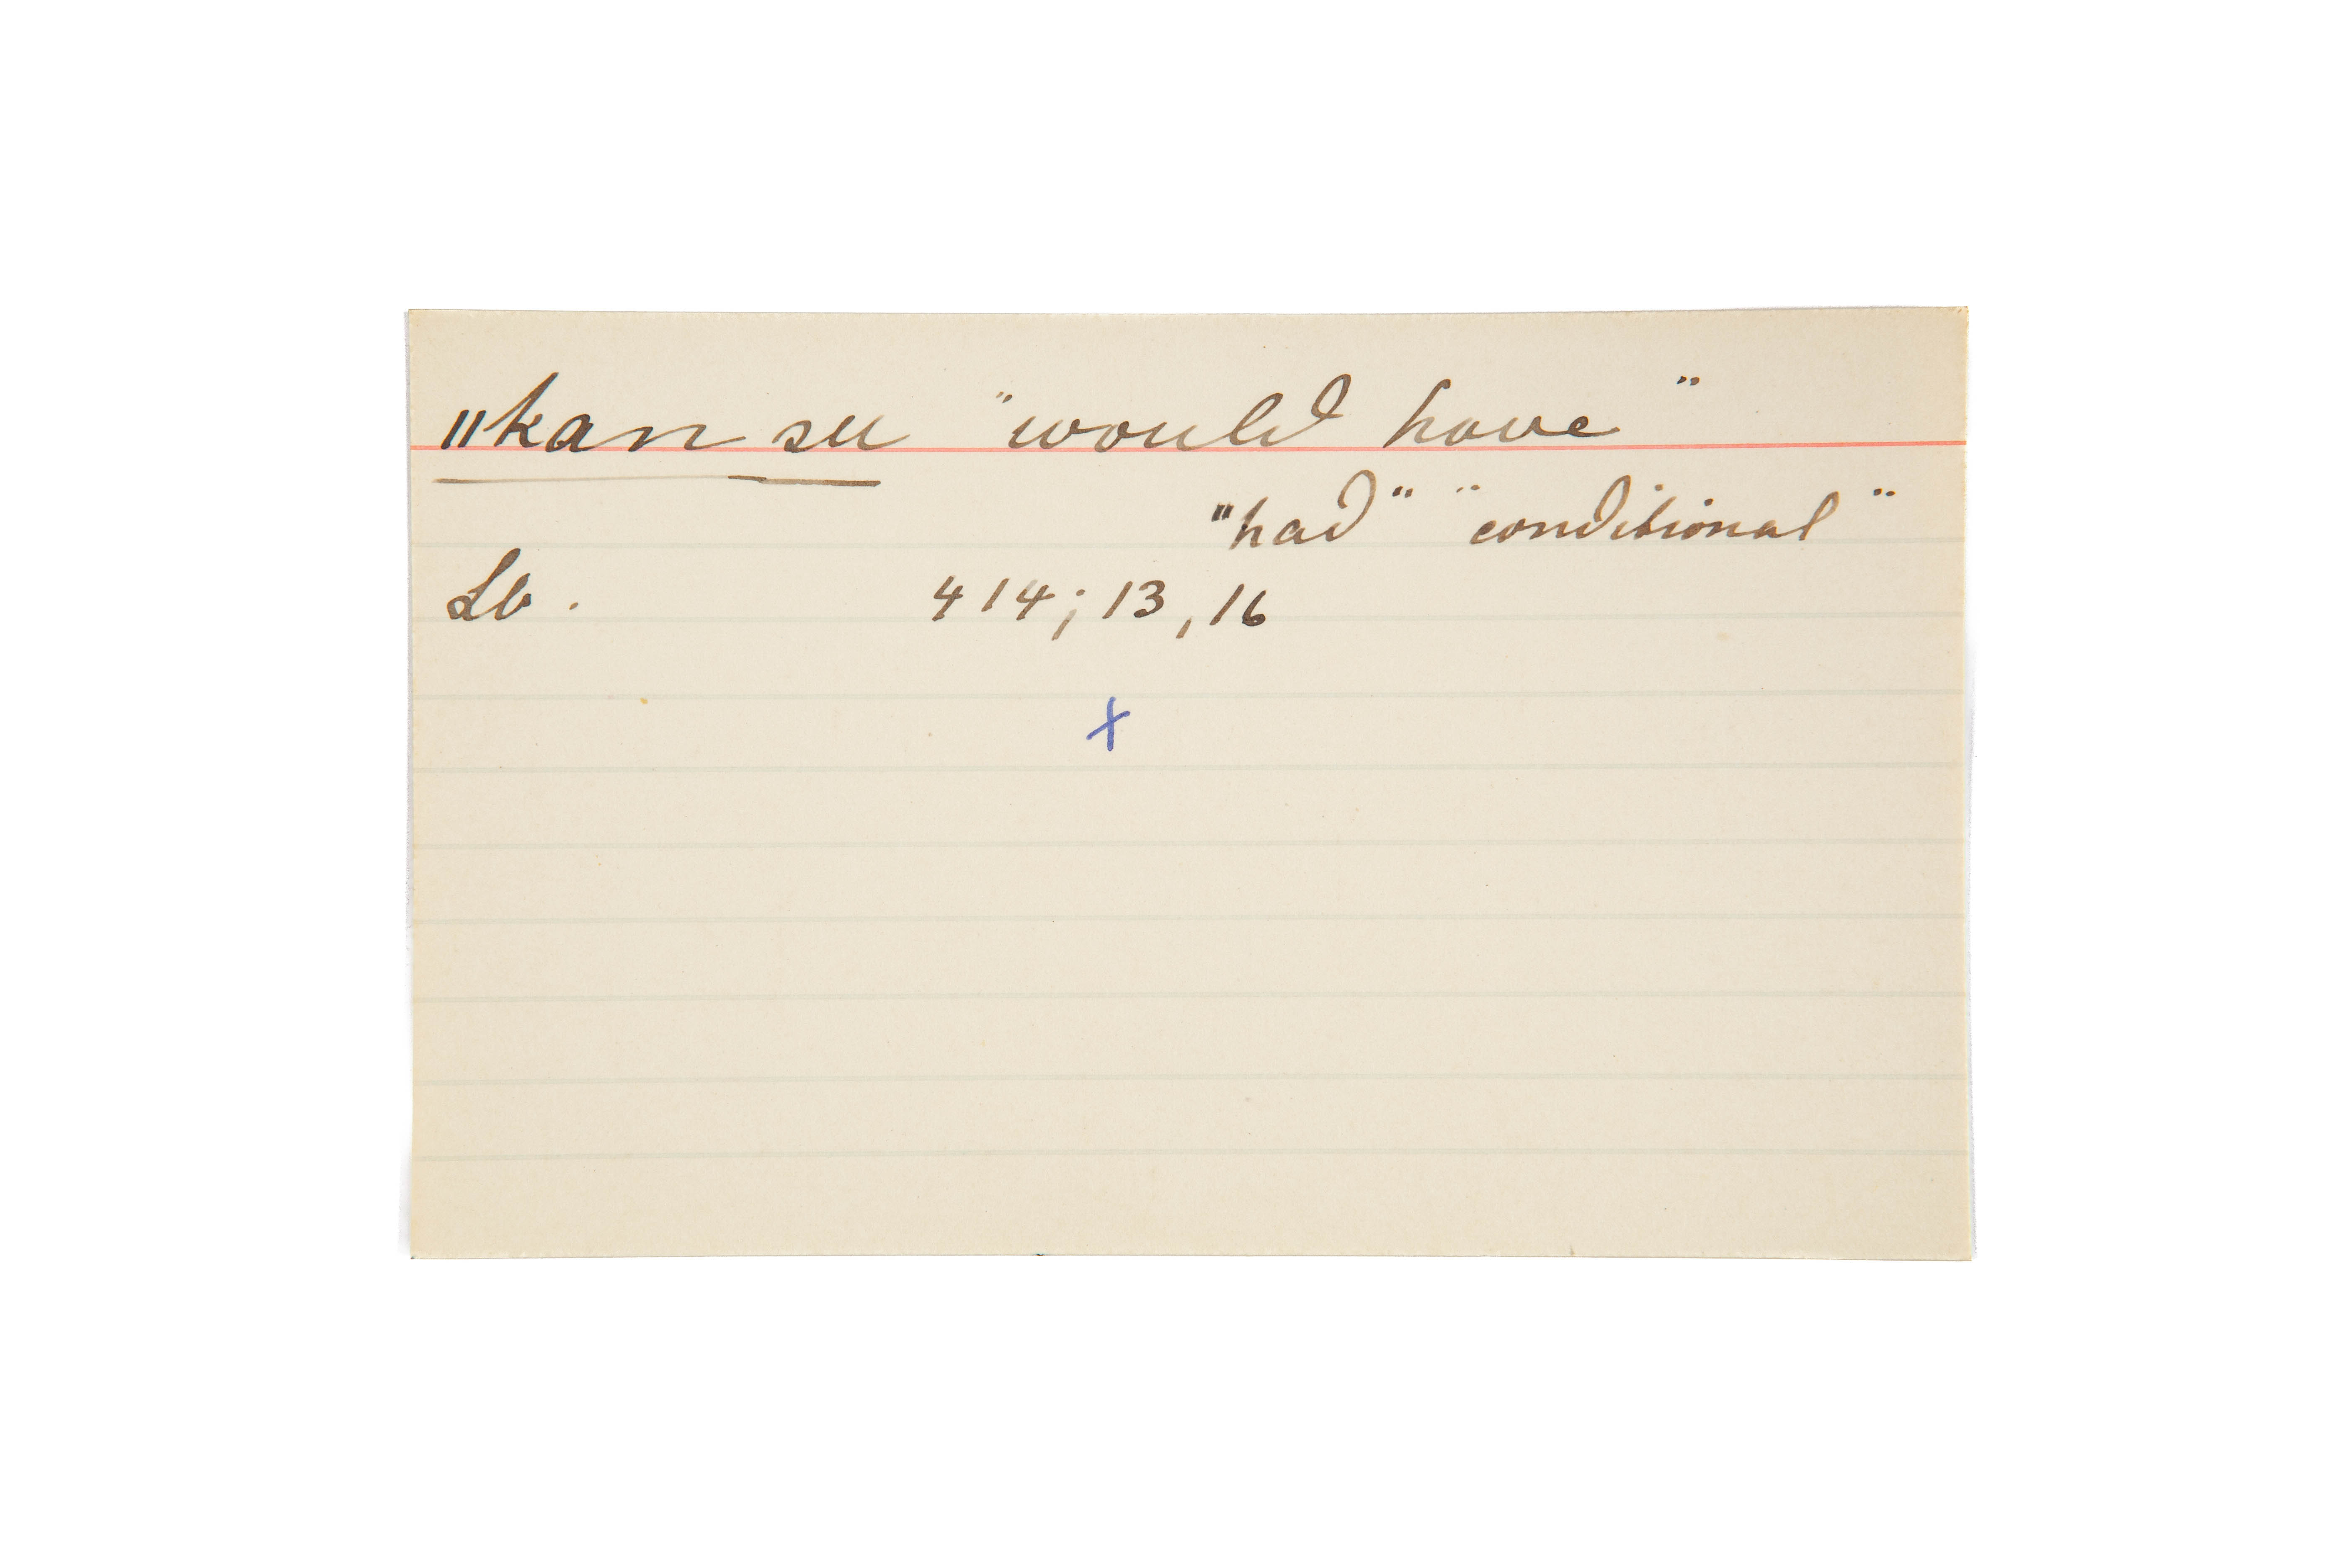 "kan su "would have"
"had" "conditional"
Lb. 414; 13, 16
x